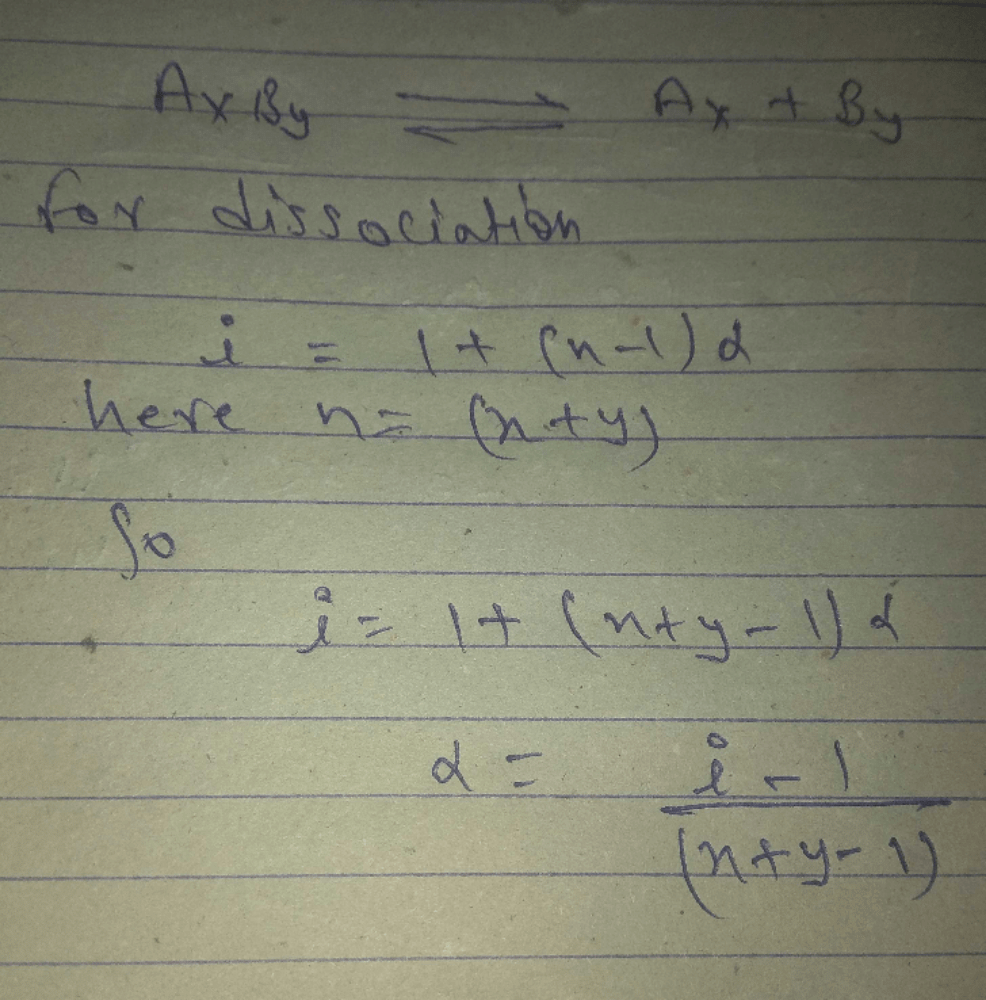 AxBy ⇌ Ax + By
for dissociation
i = 1 + (n-1) α
here n = (x+y)
So
i = 1 + (x+y-1) α
α = i - 1
(x+y-1)